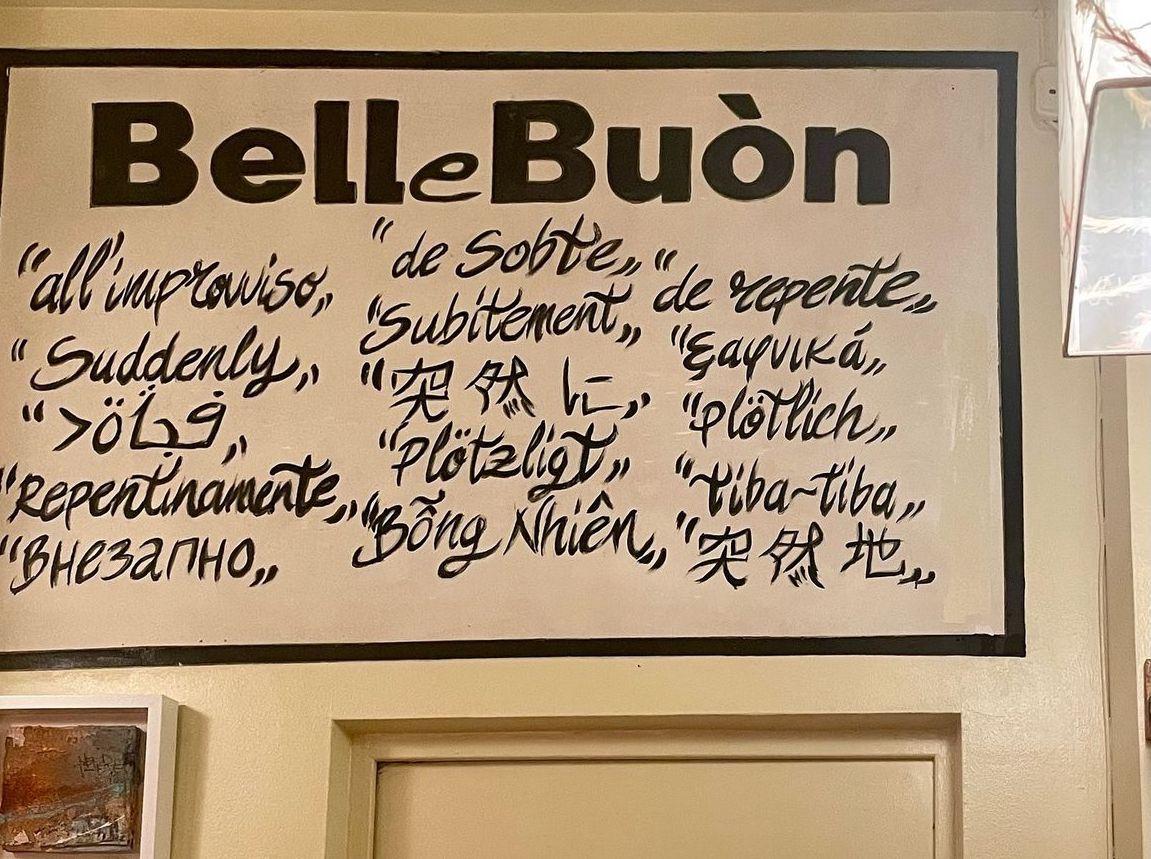 BelleBuòn
“all'improvviso„
“Suddenly„
“>فجأة„
“Repentinamente„
“Внезапно„
“de Sobte„
“Subitement„
“突然に„
“Plötzligt„
“Bỗng Nhiên„
“de repente„
“ξαφνικά„
“plötlich„
“tiba-tiba„
“突然地„